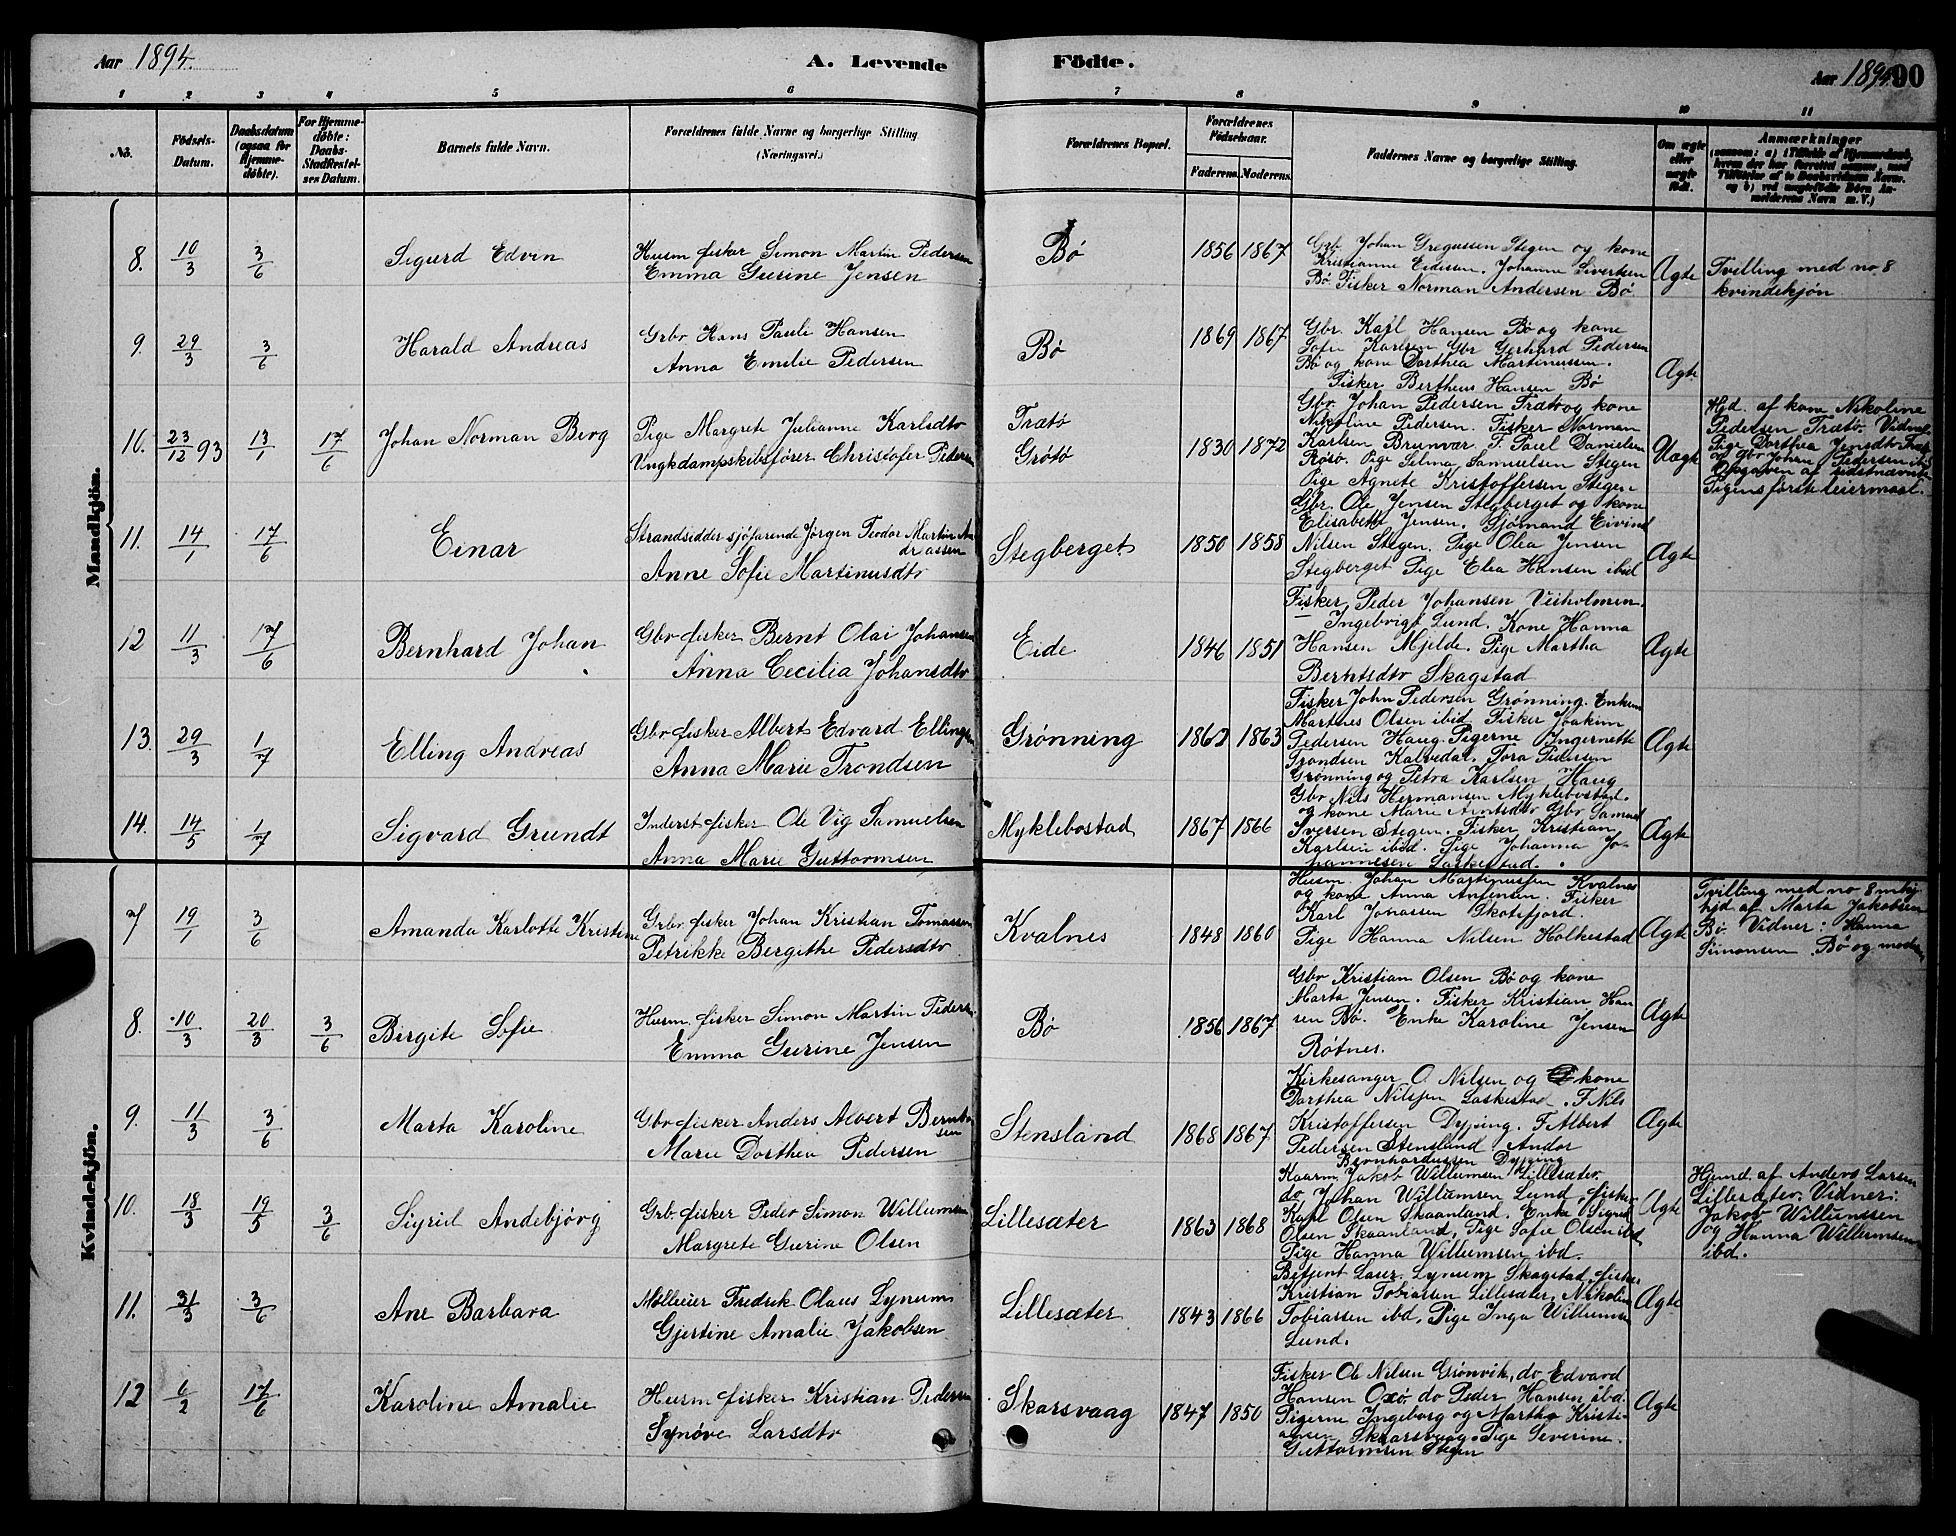 Aar 1894.
A. Levende
Födte.
Aar 1894
90
1 2 3 4 5 6 7 8 9 10 11
No.
Födsels-Datum.
Daabsdatum (ogsaa for Hjemme-döbte).
For Hjemme-döbte: Daabs-Stadfæstel-ses Datum.
Barnets fulde Navn.
Forældrenes fulde Navne og borgerlige Stilling.
(Næringsvei.)
Forældrenes Bopæl.
Forældrenes Födselsaar.
Faderens. Moderens.
Faddernes Navne og borgerlige Stilling.
Om ægte eller uægte födt.
Anmærkninger
Mandkjön.
8. 10/3 3/6 Sigurd Edvin
Husm fisker Simon Martin Pedersen
Emma Gurine Jensen
Bø 1856 1867
Grb. Johan Gregussen Stegen og kone
Kristianne Eidissen. Johanne Sivertsen
Bø Fisker Norman Andersen Bø
Ægte
Tvilling med no 8
kvindekjøn
9. 29/3 3/6 Harald Andreas
Grbr Hans Pauli Hansen
Anna Emilie Pedersen
Bø 1869 1867
Gbr. Karl Hansen Bø og kone
Sofie Karlsen Gbr Gerhard Pedersen
Bø og kone Dorthea Martinussen.
Fisker Bertheus Hansen Bø
Ægte
10. 23/12 93 13/1 17/6 Johan Norman Berg
Pige Margrete Julianne Karlsdtr
Ungk dampskibsfører Christofer Pedersen
Trætø
Grøtø
1830 1872
Gbr. Johan Pedersen Trætø og kone
Nikoline Pedersen. Fisker Norman
Karlsen Brunvær F. Paul Danielsen
Røsø. Pige Selma Samuelsen Stegen
Pige Agnete Kristoffersen Stegen
Uægte
Hjd. af kone Nikoline
Pedersen Trætø. Vidner
Pige Dorthea Jensdtr Trætø
og Gbr Johan Pedersen ibd
Opgaven af sidstnævnte
Pigens første leiermaal.
11. 14/1 17/6 Einar
Strandsidder sjøfarende Jørgen Teodor Martin An
dreassen
Anne Sofie Martinusdtr
Stegberget 1850 1858
Gbr. Ole Jensen Stegberget og kone
Elisabeth Jensen. Sjømand Eivind
Nilsen Stegen. Pige Olea Jensen
Stegberget Pige Elea Hansen ibid
Ægte
12 11/3 17/6 Bernhard Johan
Gbr fisker Bernt Olai Johansen
Anna Cecilia Johansdtr
Eide 1846 1851
Fisker Peder Johansen Veiholmen.
— Ingebrigt Lund. Kone Hanna
Hansen Mjelde. Pige Martha
Berntsdtr Skagstad
Ægte
13. 29/3 1/7 Elling Andreas
Gbr fisker Albert Edvard Ellingsen
Anna Marie Trondsen
Grønning 1862 1863
Fisker John Pedersen Grønning. Enkem
Martines Olsen ibid Fisker Joakim
Pedersen Haug. Pigerne Ingernette
Trondsen Kalvedal. Tora Pedersen
Grønning og Petra Karlsen Haug
Ægte
14. 14/5 1/7 Sigvard Grundt
Inderst fisker Ole Vig Samuelsen
Anna Marie Guttormsen
Myklebostad 1867 1866
Gbr Nils Hermansen Myklebostad.
og kone Marie Arntsdtr Gbr Samuel
Iversen Stegen. Fisker Kristian
Karlsen ibid. Pige Johanna Jo-
hannesen Laskestad.
Ægte
Kvindekjön.
7 19/1 3/6 Amanda Karlotte Kristine
Grbr fisker Johan Kristian Tomassen
Petrikke Bergithe Pedersdtr
Kvalnes 1848 1860
Husm Johan Martinussen Kvalnes
og kone Anna Antonsen. Fisker
Karl Jonassen Skotsfjord.
Pige Hanna Nilsen Holkestad
Ægte
Tvilling med no 8 mkj
hjd. af Marta Jakobsen
Bø. Vidner: Hanna
Simonsen Bø og moderen
8. 10/3 20/3 3/6 Birgite Sofie
Husm. fisker Simon Martin Pedersen
Emma Gurine Jensen
Bø 1856 1867
Gbr Kristian Olsen Bø og kone
Marta Jensen. Fisker Kristian Han
sen Bø. Enke Karoline Jensen
Røtnes.
Ægte
9. 11/3 3/6 Marta Karoline
Gbr fisker Anders Albert Bernhard
sen
Marie Dorthea Pedersen
Stensland 1868 1867
Kirkesanger O. Nilsen og kone
Dorthea Nilssen Laskestad. F Nils
Kristoffersen Dyping. F Albert
Pedersen Stensland Andor
Bernhardussen Dyping
Ægte
10. 18/3 19/5 3/6 Sigrid Andebjörg
Grb. fisker Peder Simon Willumsen
Margrete Gurine Olsen
Lillesæter 1863 1868
Kaarm. Jakob Willumsen Lillesæter.
do Johan Willumsen Lund, fisker
Karl Olsen Skaanland. Enke Sigrid
Olsen Skaanland, Pige Sofie Olsen ibd
Pige Hanna Willumsen ibd.
Ægte
Hjemd. af Anders Larsen
Lillesæter. Vidner:
Jakob Willumsen
og Hanna Willumsen
ibd.
11. 31/3 3/6 Ane Barbara
Mølleeier Fredrik Olaus Lynum
Gjertine Amalie Jakobsen
Lillesæter 1843 1866
Betjent Laur. Lynum Skagstad, fisker
Kristian Tobiassen Lillesæter, Nikoline
Tobiassen ibd, Pige Inga Willumsen
Lund.
Ægte
12 6/2 17/6 Karoline Amalie
Husm fisker Kristian Pedersen
Synöve Larsdtr
Skarsvaag 1847 1850
Fisker Ole Nilsen Grønvik, do Edvard
Hansen Oxø, do Peder Hansen ibd.
Pigerne Ingeborg og Martha Kristi-
ansen Skarsvaag. Pige Severine
Guttormsen Stegen
Ægte